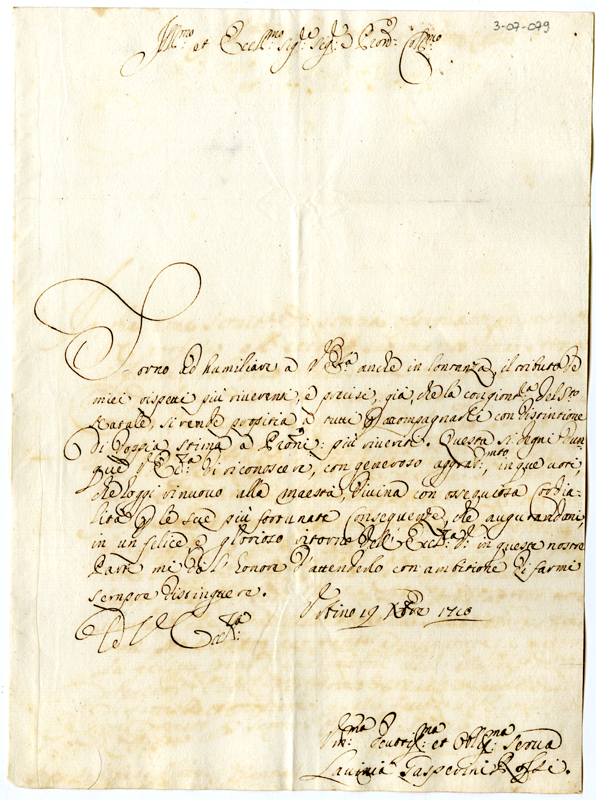 3-07-079
Ill.mo et Ecc.mo Sig.re Sig.r e Pron. Coll.mo
Torno ad humiliare a V. Ecc.za anche in lontananza, il tributo de
miei rispetti più riverenti, e precisi, già che la congiont.a del S.to
Natale, si rende propitia a tutti p accompagnarli con distintione
di doppia stima a Proni: più riveriti. Questa si degni dun-
que V. Ecc.za di riconoscere, con generoso aggradi.mto, in que voti,
che oggi rinuovo alla maestà, Divina con ossequiosa cordia-
lità p le sue più fortunate conseguenze, che augurandomi
in un felice, e glorioso ritorno dell' Ecc.za V. in queste nostre
parti mi dà l'honore d'attenderlo con ambitione di farmi
sempre distinguere.
Di V. Ecc.za
Torino 19 Xbre 1710
Um.ma Devotis.ma et Obl.ma Serva
Lavinia Gasperini Rossi.